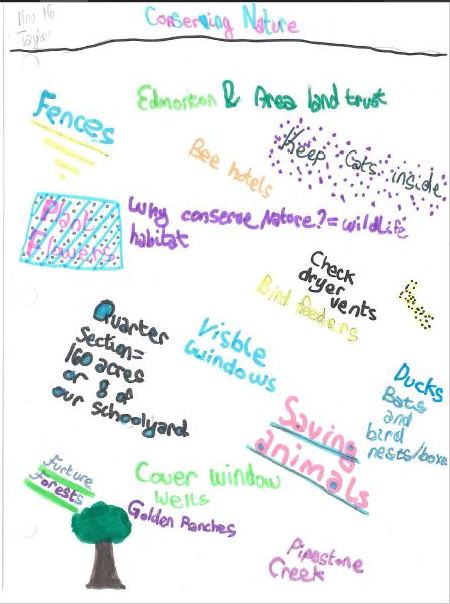 Nov 16
Taylor
Conserving Nature
Edmonton & Area land trust
Fences
Keep Cats inside
Bee hotels
Plant
Flowers
Why conserve Nature?= wildlife
habitat
Check
dryer
vents
Bird feeders
Quarter
Section=
160 acres
or 8 of
our schoolyard
Visble
windows
Ducks
Bats
and
bird
nests/boxe
Saving
animals
Furture
Forests
Cover window
Wells
Golden Ranches
Pipestone
Creek